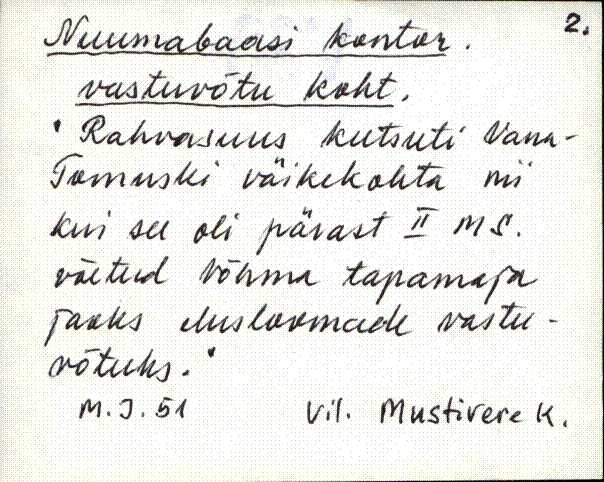 2.
Nuumabaasi kontor.
vastuvõtu koht.
"Rahvasuus kutsuti Vana-
Tomuski väikekohta nii
kui see oli pärast II M S.
võetud Võhma tapamaja
jaoks elusloomade vastu-
võtuks."
M.J.51 Vil. Mustivere k.